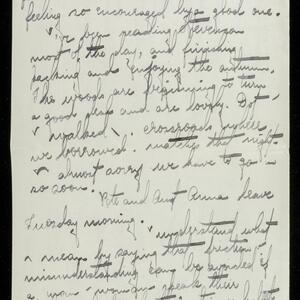 feeling so encouraged by a good one.
I've been reading Stevenson
most of the day, and finishing
packing and enjoying the autumn.
The woods are beginning to turn
a good deal and are lovely. But
I walked crossroads while
we borrowed
almost sorry we have to go
so soon.
and Aunt Anna leave
Tuesday morning. understand what
I mean by saying that friction
misunderstanding can be avoided if
a man woman speak their